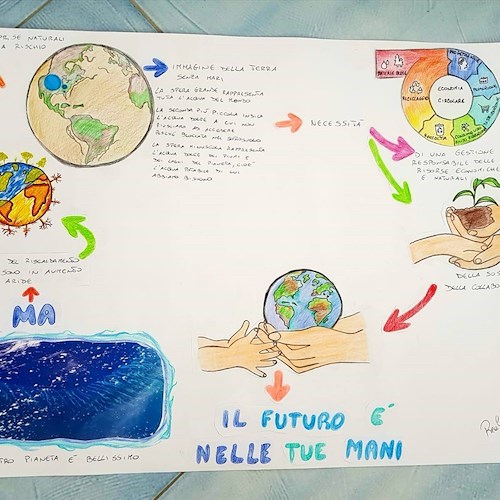 RSE NATURALI
A RISCHIO
IMMAGINE DELLA TERRA
SENZA MARI
LA SFERA GRANDE RAPPRESENTA
TUTTA L'ACQUA DEL MONDO
LA SECONDA PIÙ PICCOLA INDICA
L'ACQUA DOLCE A CUI NON
RIUSCIAMO AD ACCEDERE
PERCHÉ NEL SOTTOSUOLO
LA SFERA MINUSCOLA RAPPRESENTA
L'ACQUA DOLCE DEI FIUMI E
DEI LAGHI DEL PIANETA, CIOÈ
L'ACQUA POTABILE DI CUI
ABBIAMO BISOGNO
NECESSITÀ
MATERIE PRIME
ECONOMIA
CIRCOLARE
RICICLAGGIO
RACCOLTA
DI UNA GESTIONE
RESPONSABILE DELLE
RISORSE ECONOMICHE
E NATURALI
DEL RISCALDAMENTO
SONO IN AUMENTO
ARIDE
MA
DELLA SOS
DELLA COLLABO
IL FUTURO É
NELLE TUE MANI
TRO PIANETA É BELLISSIMO